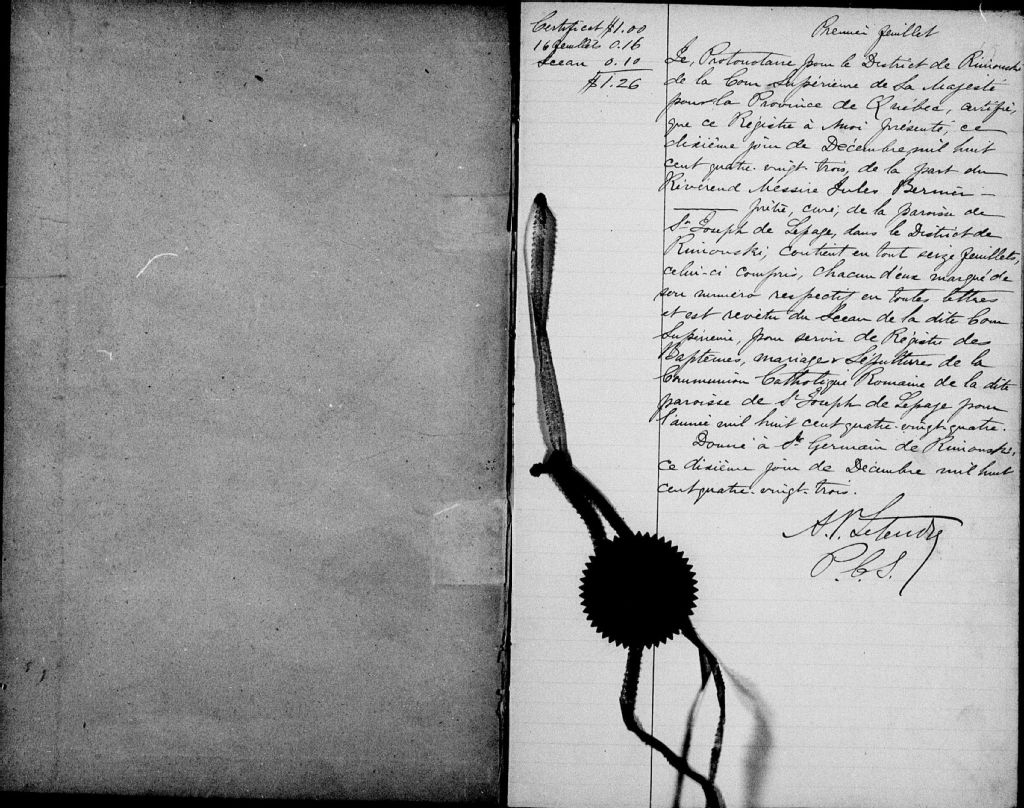 Certificat $1.00
16 feuillets 0.16
Sceau 0.10
$1.26
Premier feuillet
Le Protonotaire pour le District de Rimouski
de la Cour Supérieure de Sa Majesté
pour la Province de Québec, certifie,
que ce Régistre à moi présenté, ce
dixième jour de Décembre mil huit
cent quatre-vingt-trois, de la part du
Révérend Messire Jules Bernier —
— prêtre, curé, de la paroisse de
St Joseph de Lepage, dans le District de
Rimouski, contient en tout seize feuillets,
celui-ci compris, chacun d'eux marqué de
son numéro respectif en toutes lettres
et est revêtu du Sceau de la dite Cour
Supérieure, pour servir de Régistre des
Baptêmes, mariages & Sépultures de la
Communion Catholique Romaine de la dite
paroisse de St Joseph de Lepage pour
l'année mil huit cent quatre-vingt-quatre.
Donné à St Germain de Rimouski,
ce dixième jour de Décembre mil huit
cent quatre-vingt-trois.
A.P. Letendre
P.C.S.